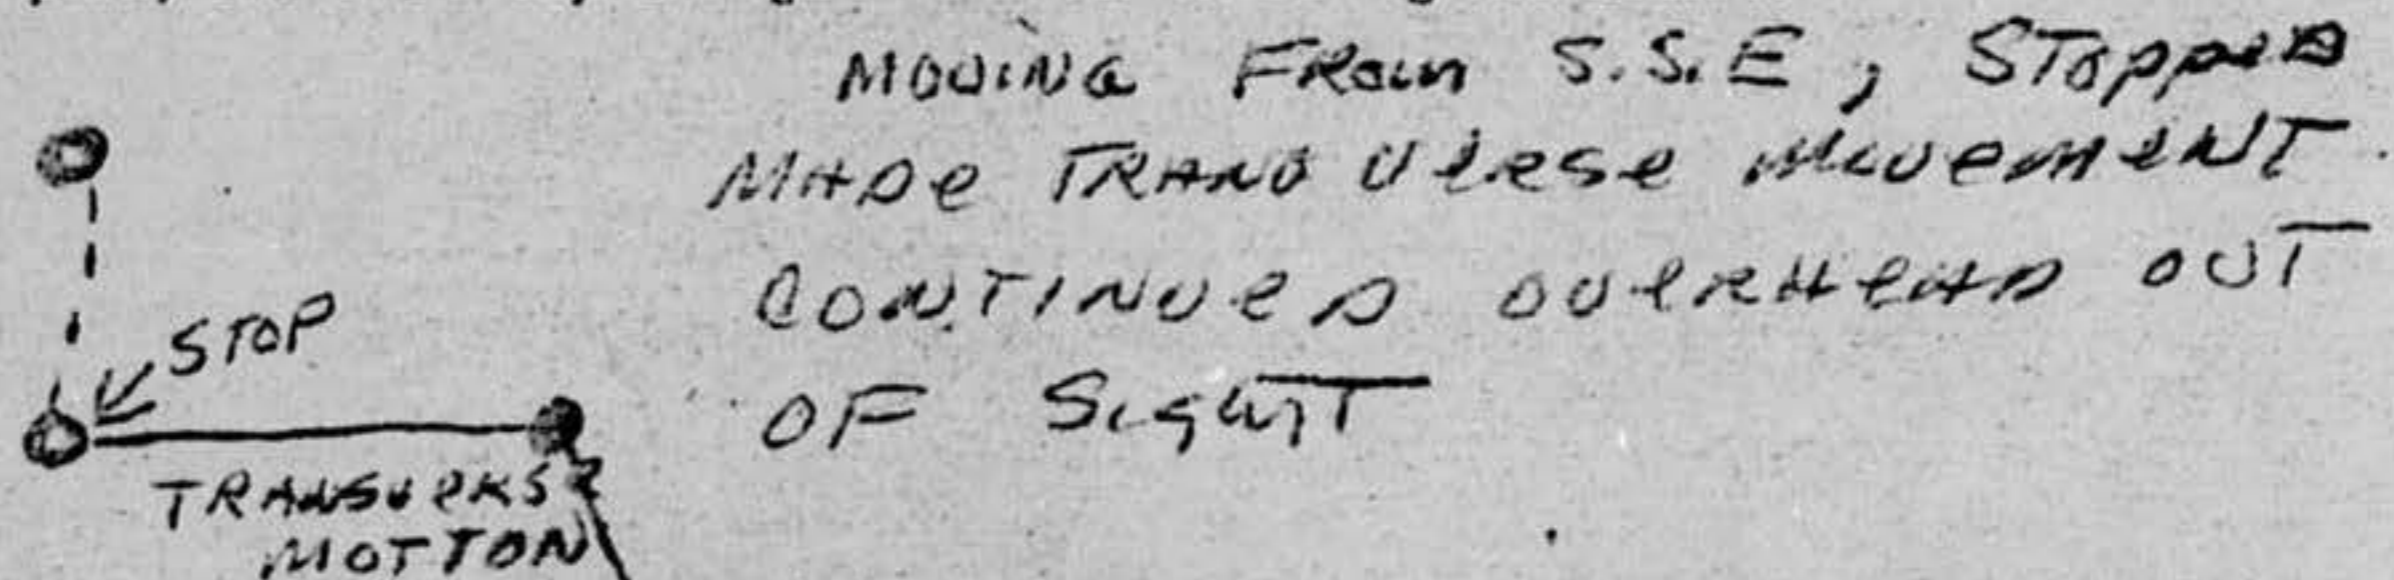 MOVING FROM S.S.E, STOPPED
MADE TRANSVERSE MOVEMENT
CONTINUED OVERHEAD OUT
OF SIGHT
STOP
TRANSVERSE
MOTION